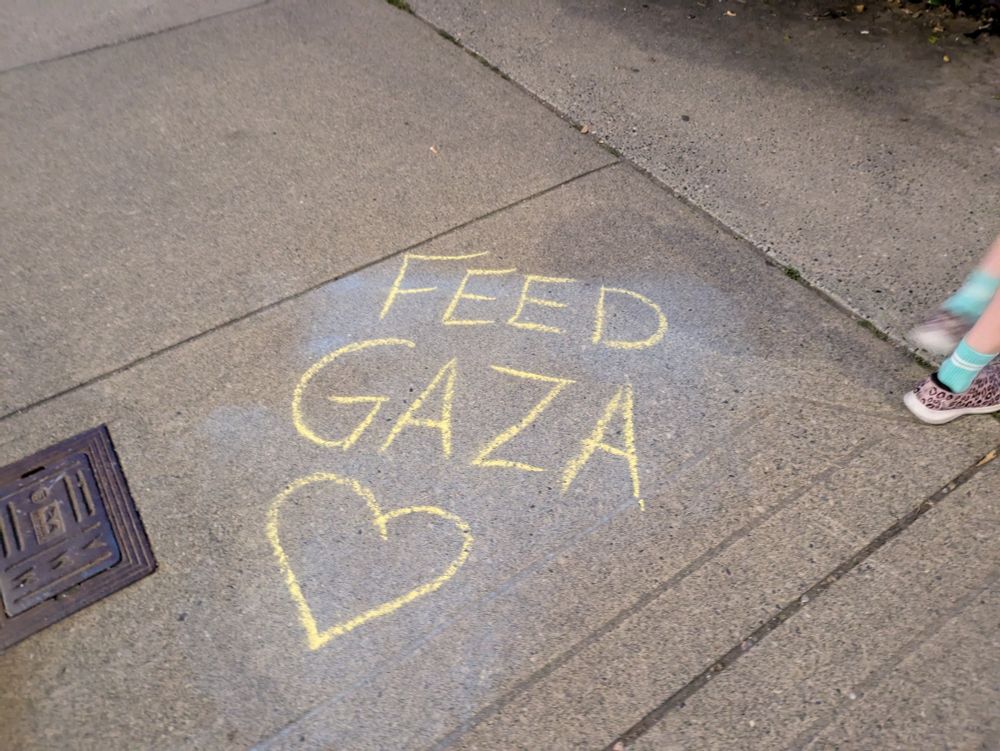 FEED
GAZA